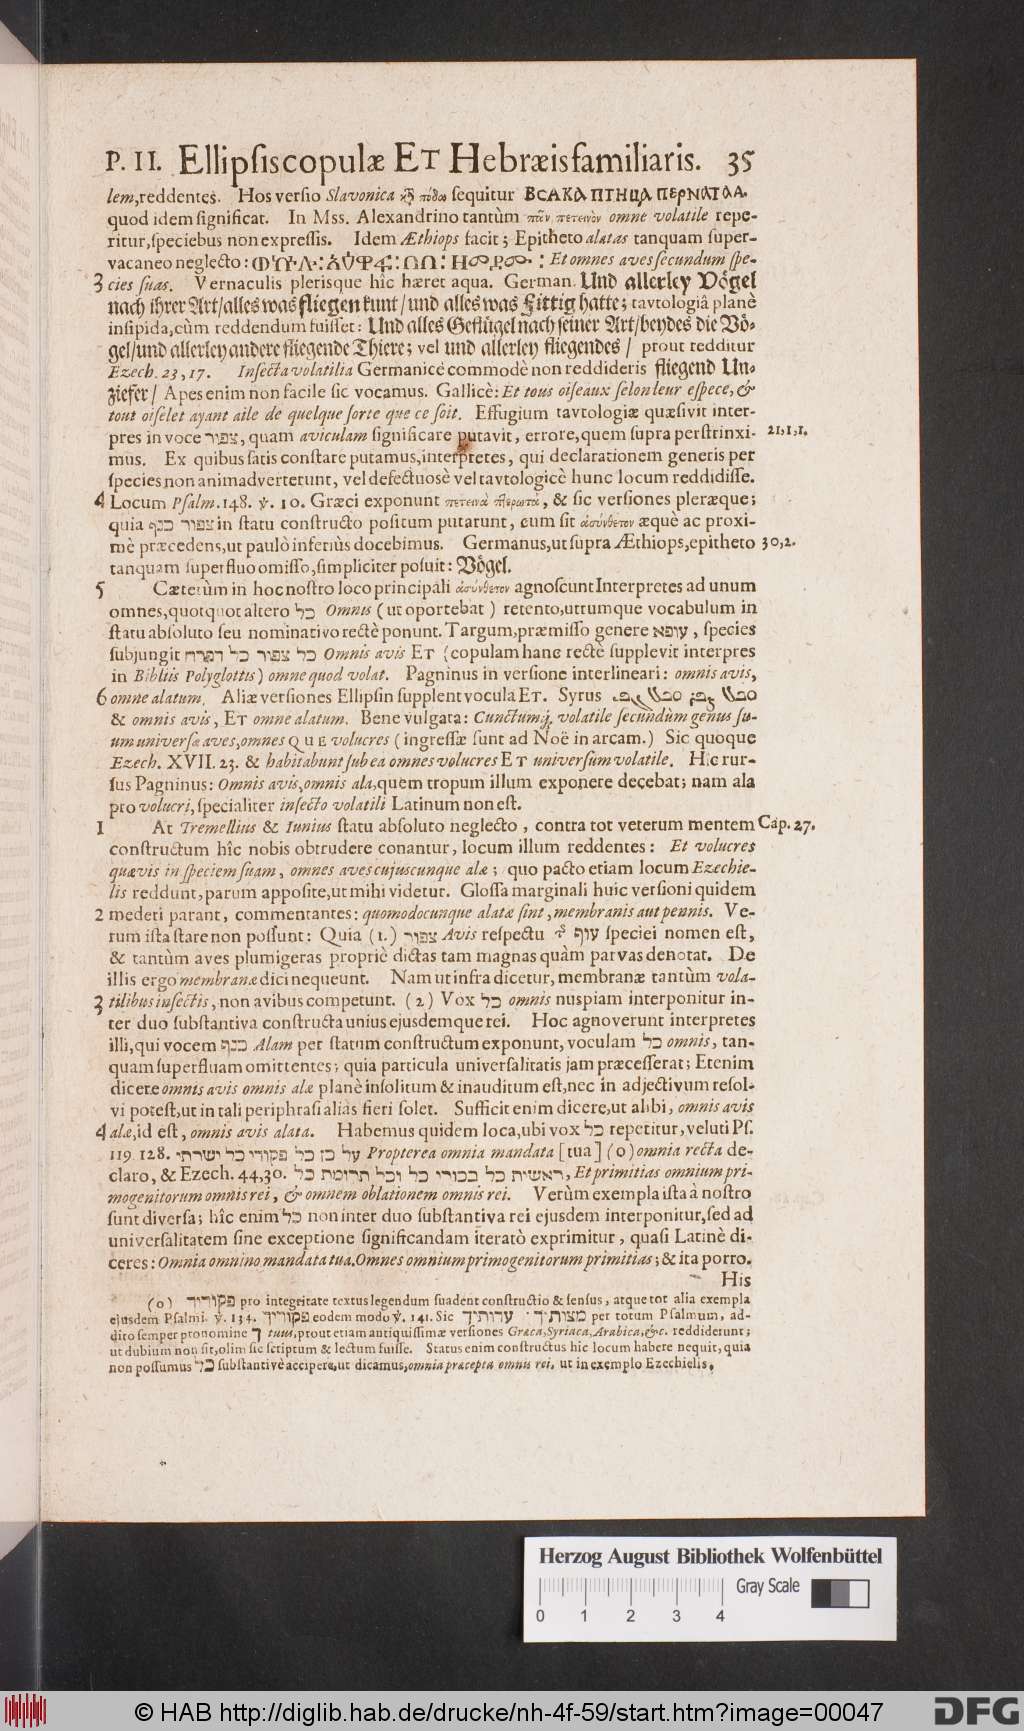 P. II. Ellipsis copulæ ET Hebræis familiaris. 35
lem, reddentes. Hos versio Slavonica sequitur ВСАКА ПТИЦА ПЕРНАТАА.
quod idem significat. In Mss. Alexandrino tantùm πᾶν πετεινὸν omne volatile repe-
ritur, speciebus non expressis. Idem Æthiops facit; Epitheto alatas tanquam super-
vacaneo neglecto: Et omnes aves secundum spe-
3 cies suas. Vernaculis plerisque hîc hæret aqua. German. Und allerley Vögel
nach ihrer Art/ alles was fliegen kunt/ und alles was Fittig hatte; tavtologiâ planè
insipida, cùm reddendum fuisset: Und alles Geflügel nach seiner Art/ beydes die Vö-
gel/ und allerley andere fliegende Thiere; vel und allerley fliegendes/ prout redditur
Ezech. 23, 17. Insecta volatilia Germanicè commodè non reddideris fliegend Un-
ziefer/ Apes enim non facile sic vocamus. Gallicè: Et tous oiseaux selon leur espece, &
tout oiselet ayant aile de quelque sorte que ce soit. Effugium tavtologiæ quæsivit inter-
pres in voce צפור, quam aviculam significare putavit, errore, quem supra perstrinxi- 21,1,1.
mus. Ex quibus satis constare putamus, interpretes, qui declarationem generis per
species non animadverterunt, vel defectuosè vel tavtologicè hunc locum reddidisse.
4 Locum Psalm. 148. ℣. 10. Græci exponunt πετεινὰ πτερωτὰ, & sic versiones pleræque;
quia צפור כנף in statu constructo positum putarunt, cum sit ἀσύνθετον æquè ac proxi-
mè præcedens, ut paulò inferiùs docebimus. Germanus, ut supra Æthiops, epitheto 30,2.
tanquam superfluo omisso, simpliciter posuit: Vögel.
5 Cæterùm in hoc nostro loco principali ἀσύνθετον agnoscunt Interpretes ad unum
omnes, quotquot altero כל Omnis (ut oportebat) retento, utrumque vocabulum in
statu absoluto seu nominativo rectè ponunt. Targum, præmisso genere עופא, species
subjungit כל צפור כל דפרח Omnis avis ET (copulam hanc rectè supplevit interpres
in Bibliis Polyglottis) omne quod volat. Pagninus in versione interlineari: omnis avis,
6 omne alatum. Aliæ versiones Ellipsin supplent vocula ET. Syrus
& omnis avis, ET omne alatum. Bene vulgata: Cunctumq; volatile secundùm genus su-
um universæ aves, omnes QUE volucres (ingressæ sunt ad Noë in arcam.) Sic quoque
Ezech. XVII. 23. & habitabunt sub ea omnes volucres ET universum volatile. Hic rur-
sus Pagninus: Omnis avis, omnis ala, quem tropum illum exponere decebat; nam ala
pro volucri, specialiter insecto volatili Latinum non est.
1 At Tremellius & Iunius statu absoluto neglecto, contra tot veterum mentem Cap. 27.
constructum hîc nobis obtrudere conantur, locum illum reddentes: Et volucres
quævis in speciem suam, omnes aves cujuscunque alæ; quo pacto etiam locum Ezechie-
lis reddunt, parum apposite, ut mihi videtur. Glossa marginali huic versioni quidem
2 mederi parant, commentantes: quomodocunque alatæ sint, membranis aut pennis. Ve-
rum ista stare non possunt: Quia (1.) צפור Avis respectu עוף speciei nomen est,
& tantùm aves plumigeras propriè dictas tam magnas quàm parvas denotat. De
illis ergo membranæ dici nequeunt. Nam ut infra dicetur, membranæ tantùm vola-
3 tilibus insectis, non avibus competunt. (2) Vox כל omnis nuspiam interponitur in-
ter duo substantiva constructa unius ejusdemque rei. Hoc agnoverunt interpretes
illi, qui vocem כנף Alam per statum constructum exponunt, voculam כל omnis, tan-
quam superfluam omittentes; quia particula universalitatis jam præcesserat; Etenim
dicere omnis avis omnis alæ planè insolitum & inauditum est, nec in adjectivum resol-
vi potest, ut in tali periphrasi alias fieri solet. Sufficit enim dicere, ut alibi, omnis avis
4 alæ, id est, omnis avis alata. Habemus quidem loca, ubi vox כל repetitur, veluti Ps.
119. 128. על כן כל פקודי כל ישרתי Propterea omnia mandata [tua] (o) omnia recta de-
claro, & Ezech. 44,30. ראשית כל בכורי כל וכל תרומת כל, Et primitias omnium pri-
mogenitorum omnis rei, & omnem oblationem omnis rei. Verùm exempla ista à nostro
sunt diversa; hîc enim כל non inter duo substantiva rei ejusdem interponitur, sed ad
universalitatem sine exceptione significandam iteratò exprimitur, quasi Latinè di-
ceres: Omnia omnino mandata tua. Omnes omnium primogenitorum primitias; & ita porro.
His
(o) פקודיך pro integritate textus legendum suadent constructio & sensus, atque tot alia exempla
ejusdem Psalmi. ℣. 134. פקודיך eodem modo ℣. 141. Sic מצותיך עדותיך per totum Psalmum, ad-
dito semper pronomine ך tuus, prout etiam antiquissimæ versiones Græca, Syriaca, Arabica, &c. reddiderunt;
ut dubium non sit, olim sic scriptum & lectum fuisse. Status enim constructus hic locum habere nequit, quia
non possumus כל substantivè accipere, ut dicamus, omnia præcepta omnis rei, ut in exemplo Ezechielis.
Herzog August Bibliothek Wolfenbüttel
Gray Scale
0 1 2 3 4
© HAB http://diglib.hab.de/drucke/nh-4f-59/start.htm?image=00047
DFG